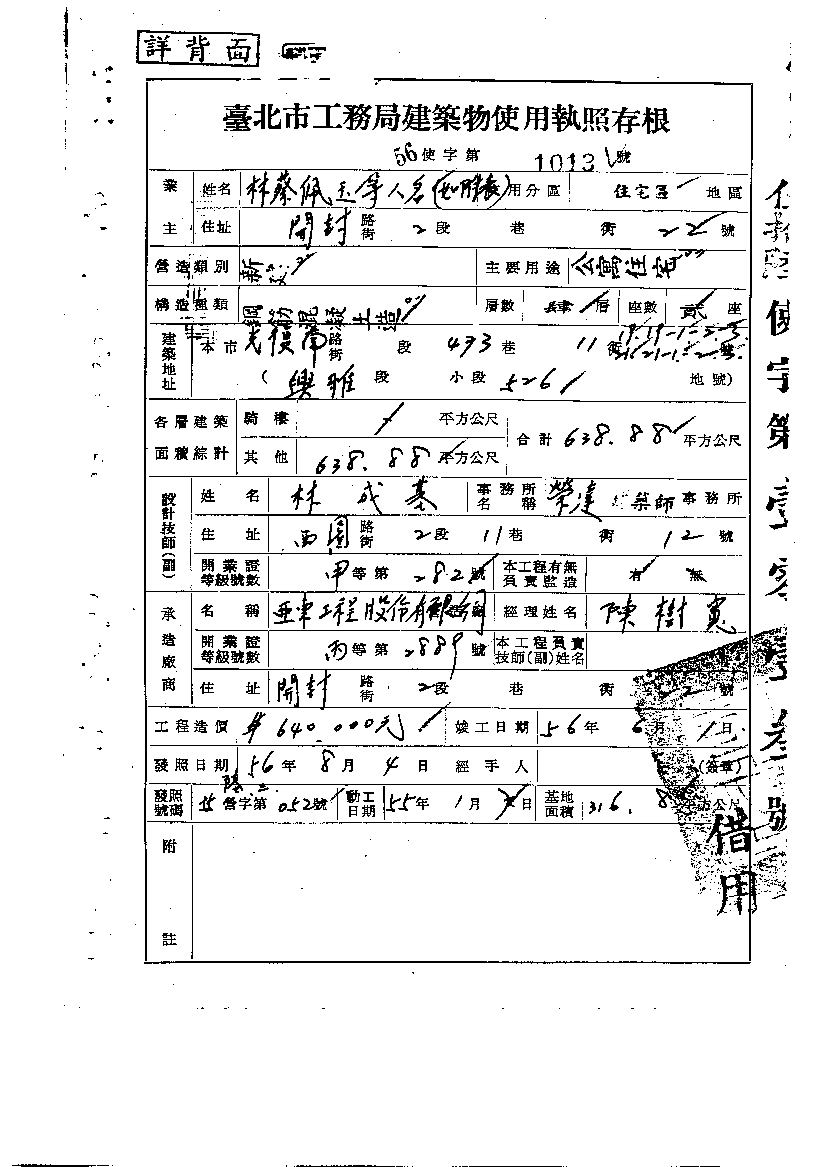 詳背面
臺北市工務局建築物使用執照存根
56使字第 1013 號
業主 姓名 林蔡佩玉等人名(如附表) 用分區 住宅區 地區
住址 開封路街 2段 巷 街 22號
營造類別 新 主要用途 公寓住宅
構造種類 鋼筋混凝土造 層數 肆層 座數 貳座
建築地址 本市 光復南路街 段 473巷 11街
(興雅段 小段 526 地號)
各層建築面積綜計 騎樓 平方公尺 合計 638.88 平方公尺
其他 638.88 平方公尺
設計技師(副) 姓名 林成基 事務所名稱 榮達建築師事務所
住址 西園路街 2段 11巷 街 12號
開業證等級號數 甲等第 282號 本工程有無負責監造 有 無
承造廠商 名稱 亞東工程股份有限公司 經理姓名 陳樹寬
開業證等級號數 丙等第 2889號 本工程負責技師(副)姓名
住址 開封路街 2段 巷 街 22號
工程造價 640.000元 竣工日期 56年 6月 1日
發照日期 56年 8月 4日 經手人 (簽章)
發照號碼 55營字第 052號 動工日期 55年 1月 日 基地面積 316.8 平方公尺
附註
使字第壹零壹叁號
借用